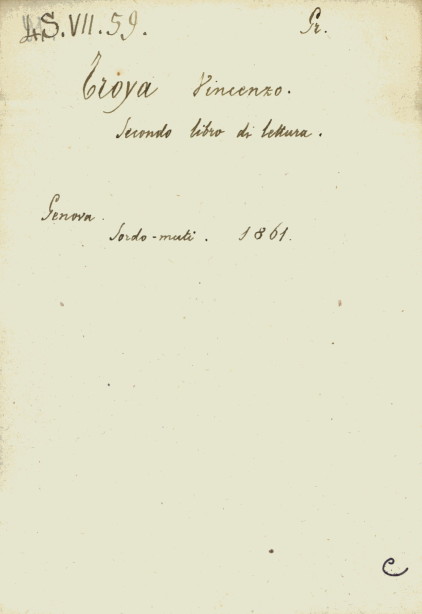 S.VII.59. Gr.
Troya Vincenzo.
Secondo libro di lettura.
Genova.
Sordo-muti. 1861.
C